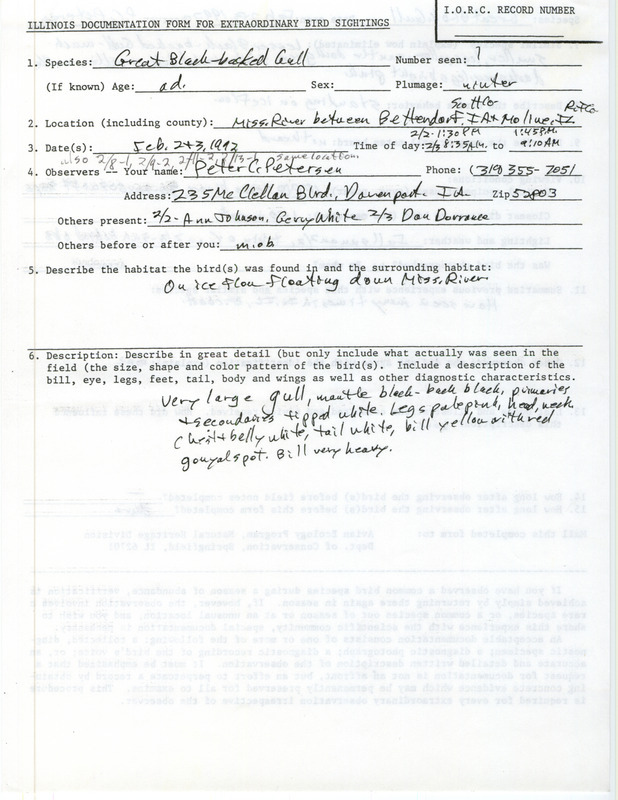 I.O.R.C. RECORD NUMBER
ILLINOIS DOCUMENTATION FORM FOR EXTRAORDINARY BIRD SIGHTINGS
1. Species: Great Black-backed Gull Number seen: 1
(If known) Age: ad. Sex: Plumage: winter
Scott Co R.I. Co.
2. Location (including county): Miss. River between Bettendorf, IA + Moline, IL
2/2-1:30 PM 1:45 P.M.
3. Date(s): Feb. 2+3, 1992 Time of day: 2/3 8:35 A.M. to 9:10 AM
also 2/8-1, 2/9-2, same location.
4. Observers -- Your name: Peter C. Petersen Phone: (319) 355-7051
Address: 235 McClellan Blvd., Davenport, IA. Zip 52803
Others present: 2/2- Ann Johnson, Gerry White 2/3 Dan Dorrance
Others before or after you: m.o.b
5. Describe the habitat the bird(s) was found in and the surrounding habitat:
On ice flow floating down Miss. River.
6. Description: Describe in great detail (but only include what actually was seen in the
field (the size, shape and color pattern of the bird(s). Include a description of the
bill, eye, legs, feet, tail, body and wings as well as other diagnostic characteristics.
Very large gull, mantle black-back black, primaries
+ secondaries tipped white. Legs pale pink, head, neck
chest + belly white, tail white, bill yellow with red
gonyal spot. Bill very heavy.